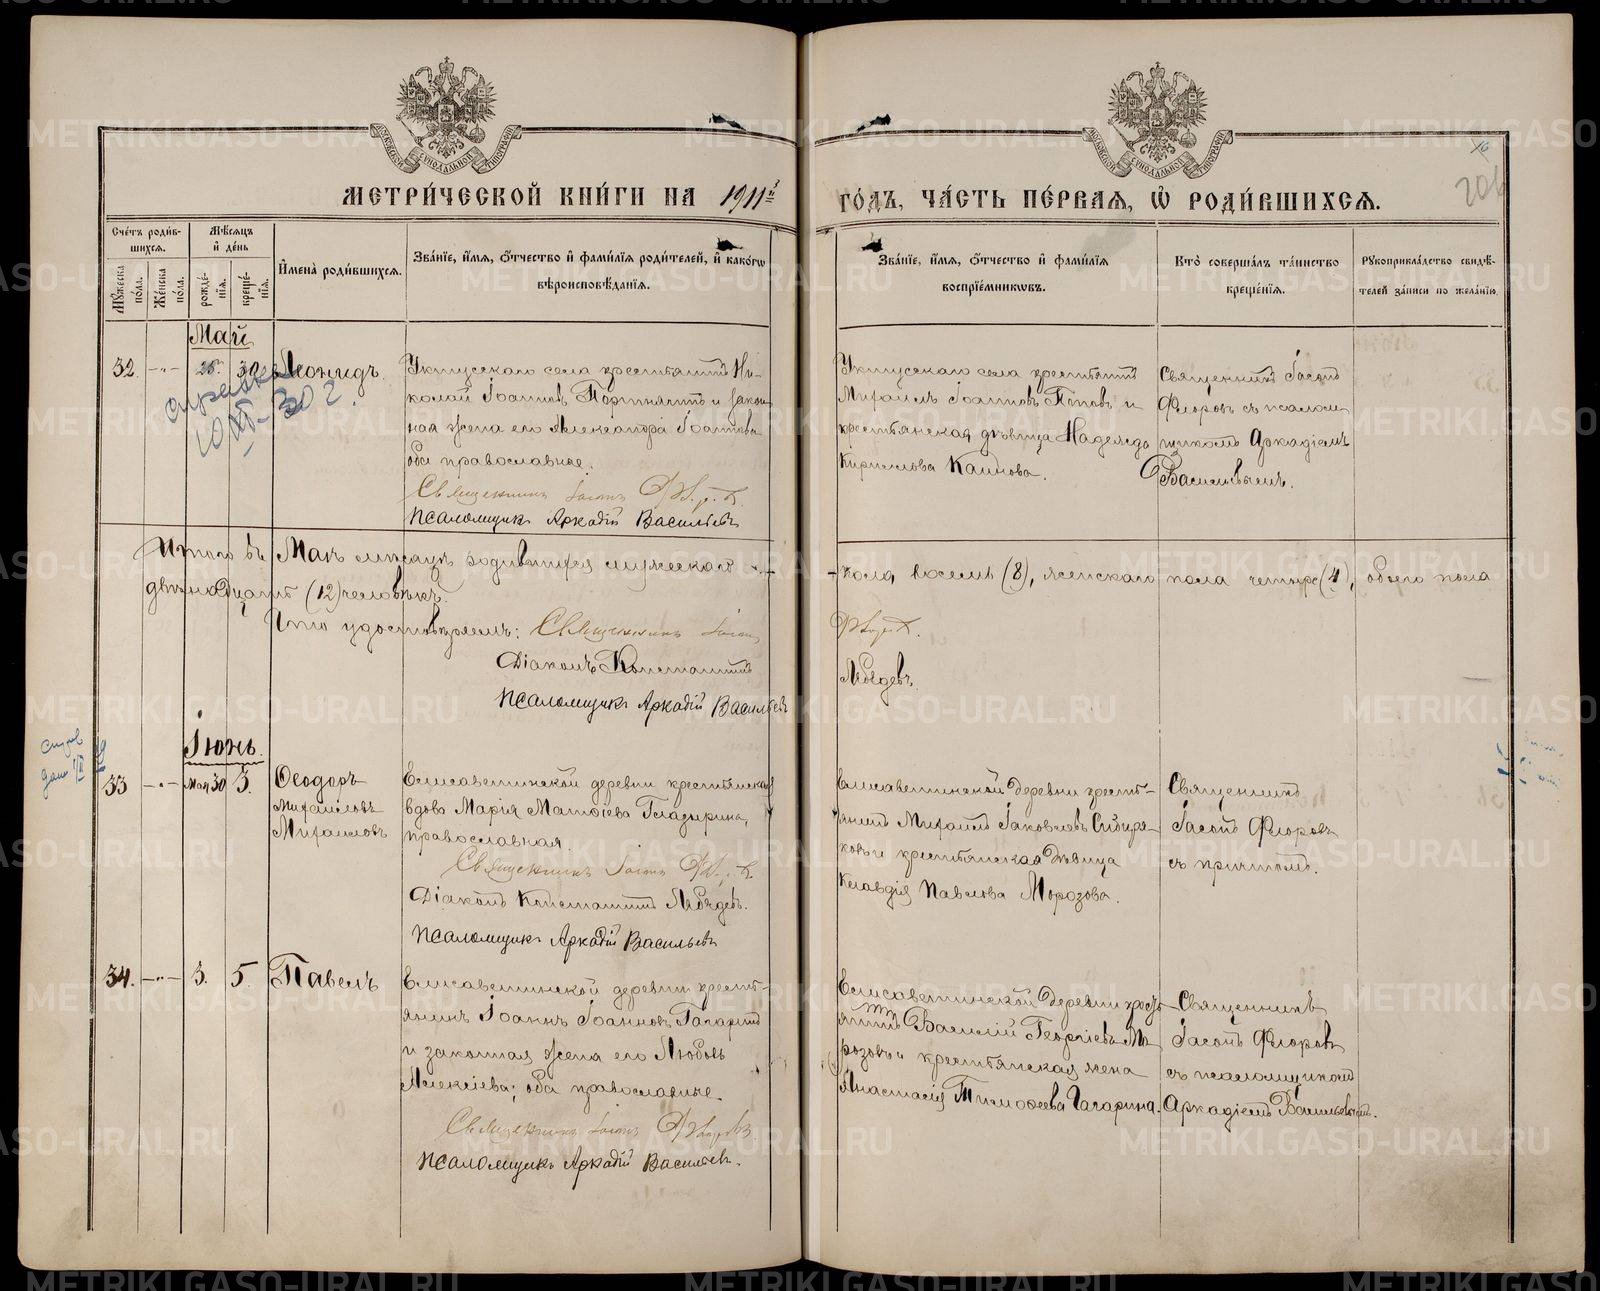 МЕТРИ́ЧЕСКОЙ КНИ́ГИ НА 1911й ГО́ДЪ, ЧА́СТЬ ПЕ́РВАЯ, Ѿ РОДИ́ВШИХСЯ.
206
Сче́тъ роди́в-
шихся.
Мѣ́сяцъ
и҆ де́нь
Мꙋ́жеска по́ла.
Же́нска по́ла.
рожде́-
нїя.
креще́-
нїя.
И҆мена̀ роди́вшихся.
Зва́нїе, и҆́мя, ѻ҆́тчество и҆ фами́лїя роди́телей, и҆ како́гѡ
вѣроисповѣ́данїя.
Зва́нїе, и҆́мя, ѻ҆́тчество и҆ фами́лїя
воспрїе́мникѡвъ.
Кто̀ соверша́лъ та́инство
креще́нїя.
Рꙋкоприкла́дство свидѣ́-
телей за́писи по жела́нїю.
Май
32. -"- 25 30 Леонидъ
Уктусскаго села крестьянинъ Ни-
колай Іоанновъ Портнягинъ и закон-
ная жена его Александра Іоаннова
оба православные.
Священникъ Іасонъ
Псаломщикъ Аркадій Васильевъ
Уктусскаго села крестьянинъ
Михаилъ Іоанновъ Поповъ и
крестьянская дѣвица Надежда
Кириллова
Священникъ Іасонъ
Флоровъ съ псалом-
щикомъ Аркадіемъ
Васильевымъ.
Итого въ Маѣ мѣсяцѣ родившихся мужескаго
пола восемь (8), женскаго пола четыре (4), обоего пола
двѣнадцать (12) человѣкъ.
Что удостовѣряемъ: Священникъ Іасонъ
Діаконъ Константинъ Лебедевъ
Псаломщикъ Аркадій Васильевъ
Іюнь.
33 -"- Мая 30 3. Ѳеодоръ
Михаиловъ
Михаиловъ
Елисаветинской деревни крестьянская
вдова Марія Матѳіева Гладырина,
православная.
Священникъ Іасонъ
Діаконъ Константинъ Лебедевъ.
Псаломщикъ Аркадій Васильевъ
Елисаветинской деревни кресть-
янинъ Михаилъ Іаковлевъ Сибиря-
ковъ и крестьянская дѣвица
Клавдія Павлова Морозова.
Священникъ
Іасонъ Флоровъ
съ причтомъ.
34. -"- 3. 5. Павелъ
Елисаветинской деревни кресть-
янинъ Іоаннъ Іоанновъ Гагаринъ
и законная жена его Любовь
Алексіева; оба православные.
Священникъ Іасонъ
Псаломщикъ Аркадій Васильевъ.
Елисаветинской деревни кресть-
янинъ Василій Георгіевъ Мо-
розовъ и крестьянская жена
Анастасія Тимоѳеева Гагарина.
Священникъ
Іасонъ Флоровъ
съ псаломщикомъ
Аркадіемъ Васильевымъ.
METRIKI.GASO-URAL.RU